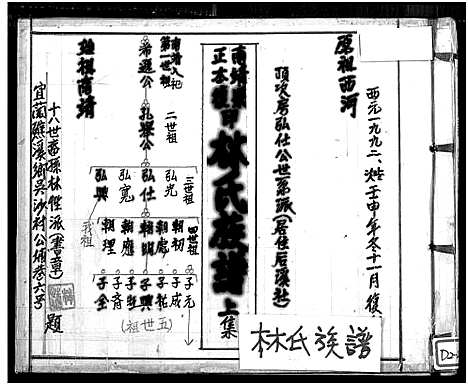 西元一九九二、歲壬申年冬十一月復
原祖西河
頂次房弘仕公世系派(居住后溪社)
林氏族譜 上集
林氏族譜
南靖入祀
第一世祖
希選公
二世祖
孔舉公
三世祖
弘光
弘仕
弘寬
弘興
四世祖
朝初
朝處
朝明
朝應
朝理
我祖
子元
子成
子乾
子興
子全
(五世祖)
雄祖南靖
十八世裔孫林性派(書草)
宜蘭縣礁溪鄉吳沙村公埔巷六号
題